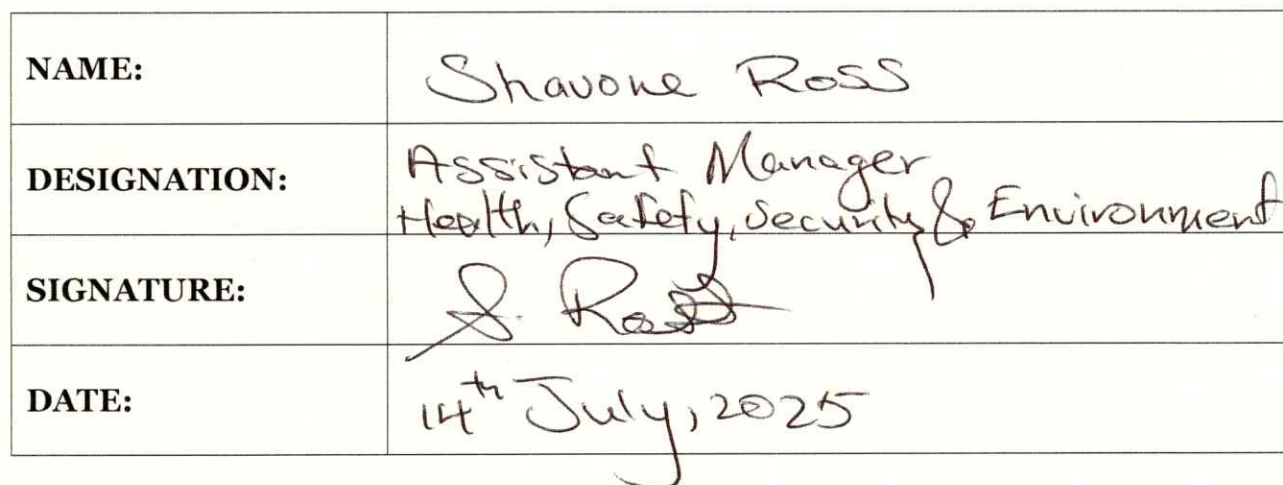 NAME: Shavone Ross
DESIGNATION: Assistant Manager
Health, Safety, Security & Environment
SIGNATURE: S. Ross
DATE: 14th July, 2025